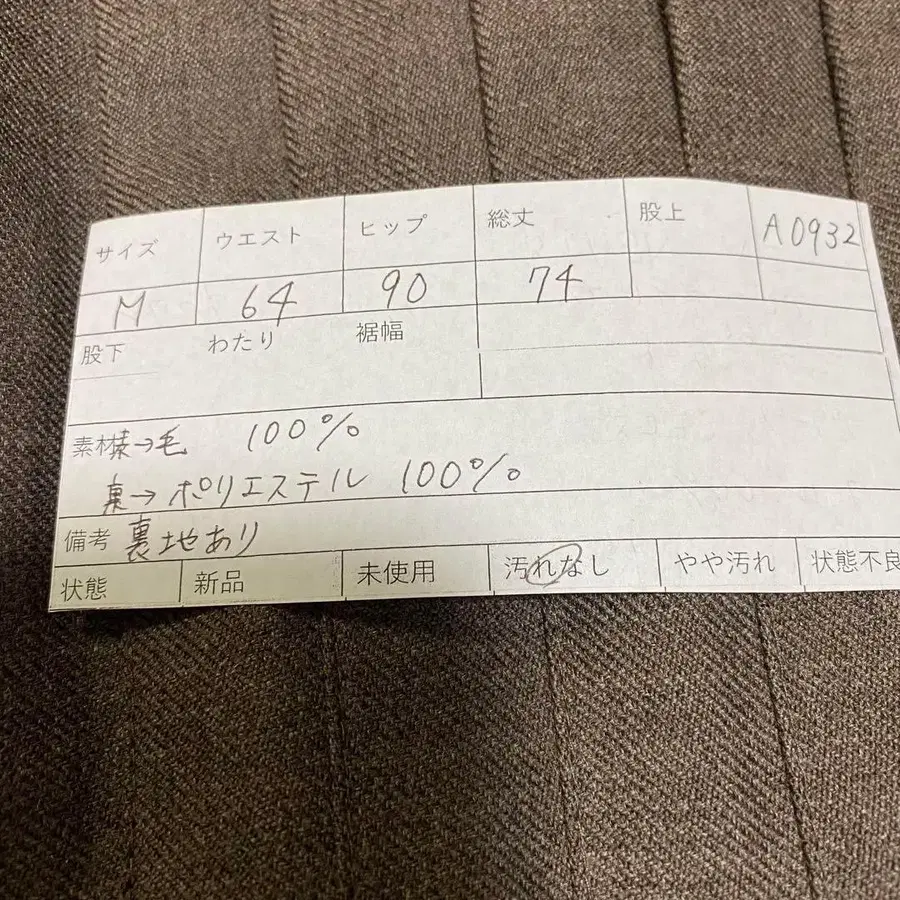 サイズ ウエスト ヒップ 総丈 股上 A0932
M 64 90 74
股下 わたり 裾幅
素材 表→毛 100%
裏→ポリエステル 100%
備考 裏地あり
状態 新品 未使用 汚れなし やや汚れ 状態不良